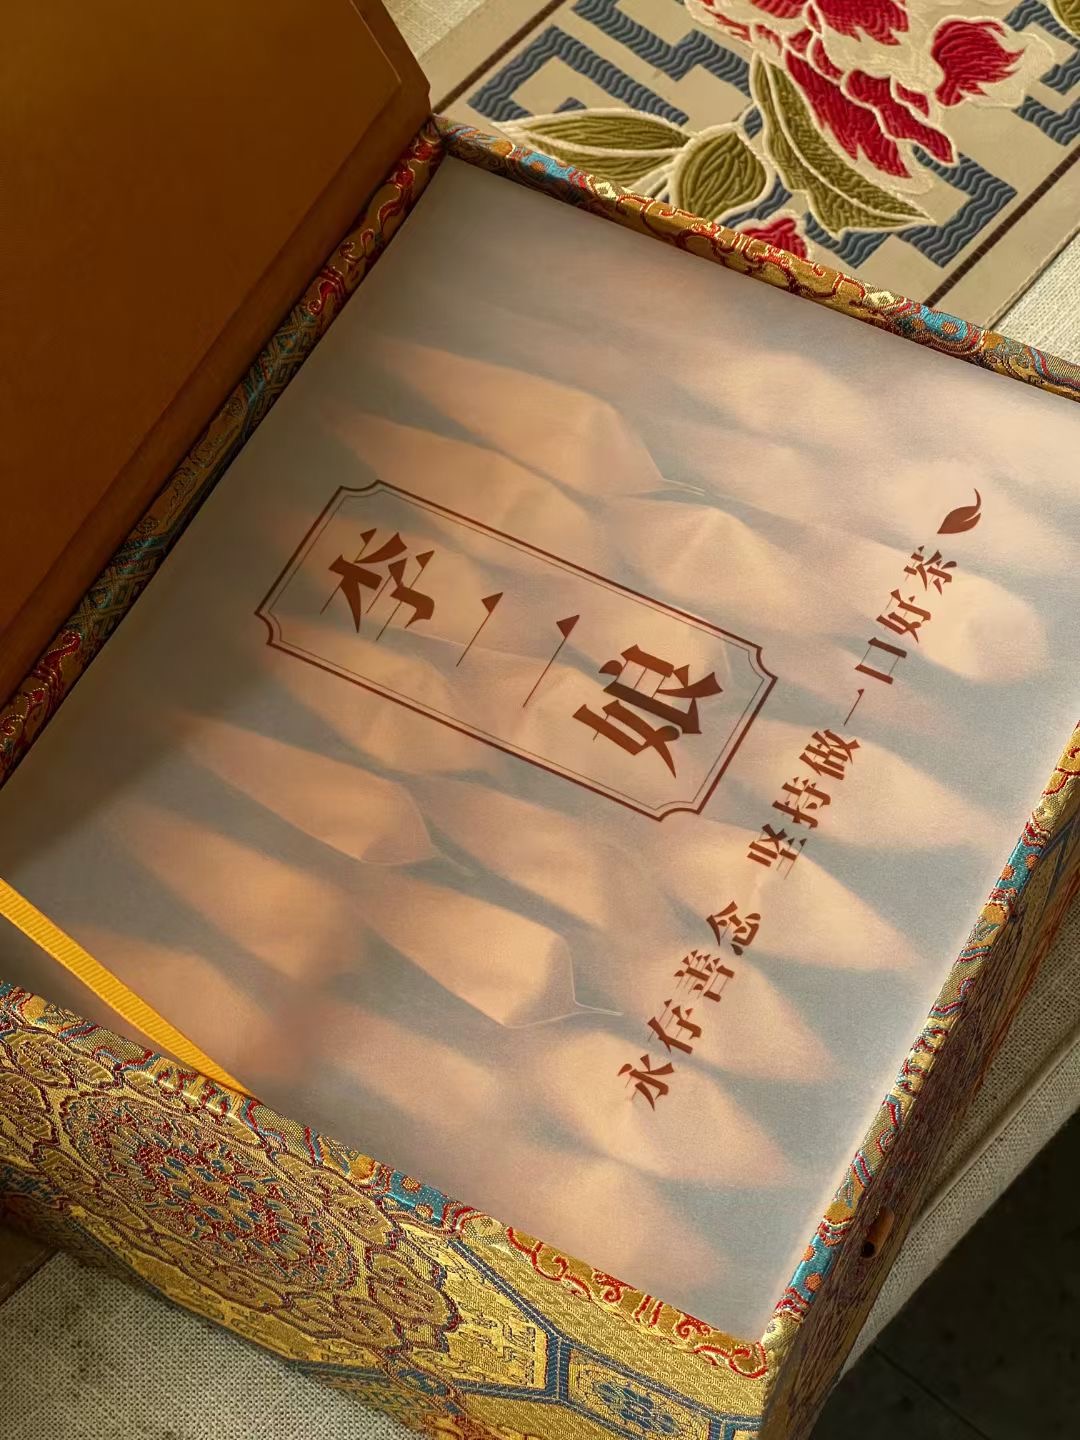 李二娘
永存善念 坚持做一口好茶